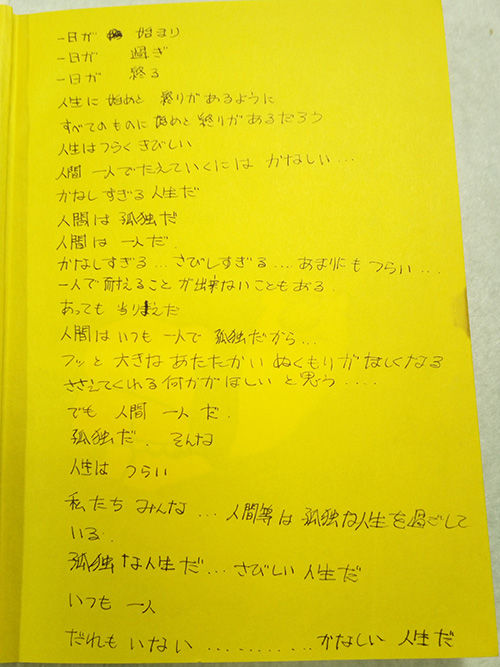 一日が 始まり
一日が 過ぎ
一日が 終る
人生に 始めと 終りが あるように
すべてのものに 始めと 終りが あるだろう
人生は つらく きびしい
人間 一人で たえていくには かなしい…
かなし すぎる 人生だ
人間は 孤独だ
人間は 一人だ.
かなしすぎる… さびしすぎる…. あまりにも つらい….
一人で 耐えること が 出来ないこともある.
あっても 当りまえだ
人間は いつも 一人で 孤独だから…
フッと 大きな あたたかい ぬくもりが ほしくなる
ささえてくれる 何かが ほしい と 思う ....
でも 人間 一人 だ.
孤独だ. そんな
人生は つらい
私たち みんな … 人間等は 孤独な人生を過ごして
いる.
孤独 な人生だ… さびしい 人生だ
いつも 一人
だれも いない ............ かなしい 人生だ